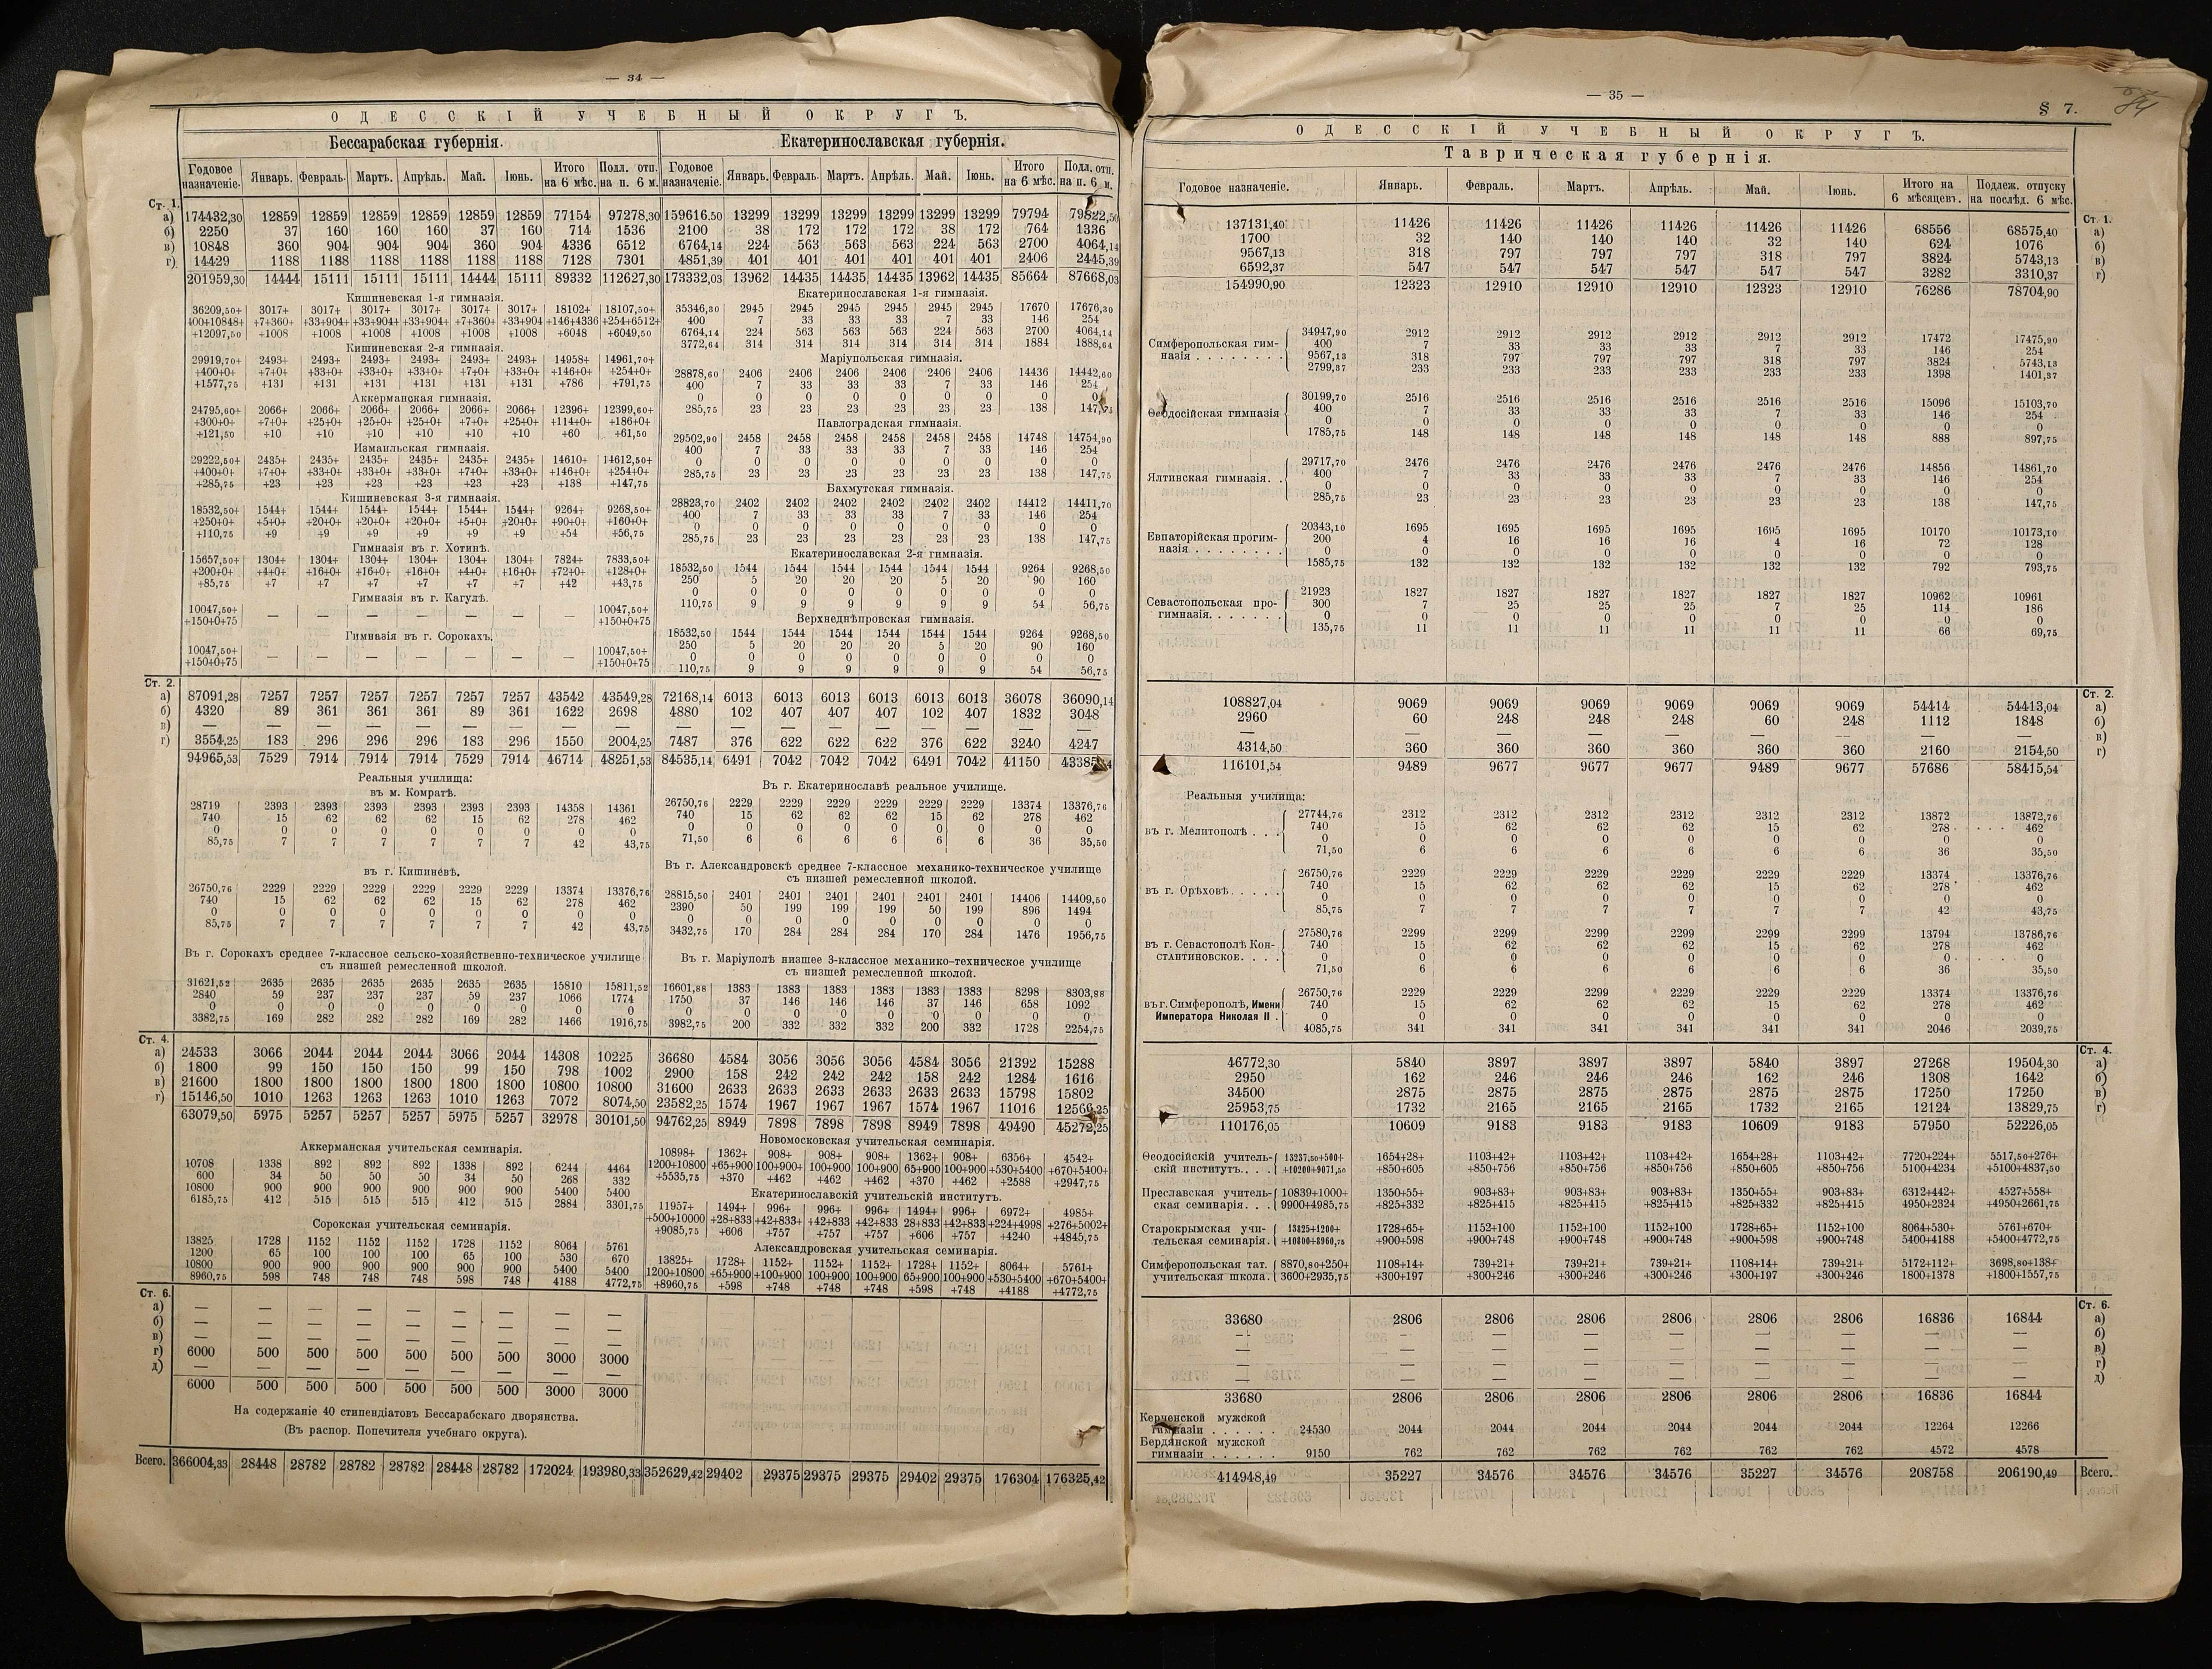 — 34 —
ОДЕССКІЙ УЧЕБНЫЙ ОКРУГЪ.
Бессарабская губернія. Екатеринославская губернія.
Годовое назначеніе. Январь. Февраль. Мартъ. Апрѣль. Май. Іюнь. Итого на 6 мѣс. Подл. отп. на п. 6 м. Годовое назначеніе. Январь. Февраль. Мартъ. Апрѣль. Май. Іюнь. Итого на 6 мѣс. Подл. отп. на п. 6 м.
Ст. 1.
а) 174432,30 12859 12859 12859 12859 12859 12859 77154 97278,30 159616.50 13299 13299 13299 13299 13299 13299 79794 79822,50
б) 2250 37 160 160 160 37 160 714 1536 2100 38 172 172 172 38 172 764 1336
в) 10848 360 904 904 904 360 904 4336 6512 6764,14 224 563 563 563 224 563 2700 4064,14
г) 14429 1188 1188 1188 1188 1188 1188 7128 7301 4851,39 401 401 401 401 401 401 2406 2445,39
201959,30 14444 15111 15111 15111 14444 15111 89332 112627,30 173332,03 13962 14435 14435 14435 13962 14435 85664 87668,03
Кишиневская 1-я гимназія.
36209,50+ 3017+ 3017+ 3017+ 3017+ 3017+ 3017+ 18102+ 18107,50+
400+10848+ +7+360+ +33+904+ +33+904+ +33+904+ +7+360+ +33+904 +146+4336 +254+6512+
+12097,50 +1008 +1008 +1008 +1008 +1008 +1008 +6048 +6049,50
Кишиневская 2-я гимназія.
29919,70+ 2493+ 2493+ 2493+ 2493+ 2493+ 2493+ 14958+ 14961,70+
+400+0+ +7+0+ +33+0+ +33+0+ +33+0+ +7+0+ +33+0+ +146+0+ +254+0+
+1577,75 +131 +131 +131 +131 +131 +131 +786 +791,75
Аккерманская гимназія.
24795,60+ 2066+ 2066+ 2066+ 2066+ 2066+ 2066+ 12396+ 12399,60+
+300+0+ +7+0+ +25+0+ +25+0+ +25+0+ +7+0+ +25+0+ +114+0+ +186+0+
+121,50 +10 +10 +10 +10 +10 +10 +60 +61,50
Измаильская гимназія.
29222,50+ 2435+ 2435+ 2435+ 2435+ 2435+ 2435+ 14610+ 14612,50+
+400+0+ +7+0+ +33+0+ +33+0+ +33+0+ +7+0+ +33+0+ +146+0+ +254+0+
+285,75 +23 +23 +23 +23 +23 +23 +138 +147,75
Кишиневская 3-я гимназія.
18532,50+ 1544+ 1544+ 1544+ 1544+ 1544+ 1544+ 9264+ 9268,50+
+250+0+ +5+0+ +20+0+ +20+0+ +20+0+ +5+0+ +20+0+ +90+0+ +160+0+
+110,75 +9 +9 +9 +9 +9 +9 +54 +56,75
Гимназія въ г. Хотинѣ.
15657,50+ 1304+ 1304+ 1304+ 1304+ 1304+ 1304+ 7824+ 7833,50+
+200+0+ +4+0+ +16+0+ +16+0+ +16+0+ +4+0+ +16+0+ +72+0+ +128+0+
+85,75 +7 +7 +7 +7 +7 +7 +42 +43,75
Гимназія въ г. Кагулѣ.
10047,50+ — — — — — — — 10047,50+
+150+0+75 +150+0+75
Гимназія въ г. Сорокахъ.
10047,50+ — — — — — — — 10047,50+
+150+0+75 +150+0+75
Екатеринославская 1-я гимназія.
35346,30 2945 2945 2945 2945 2945 2945 17670 17676,30
400 7 33 33 33 7 33 146 254
6764,14 224 563 563 563 224 563 2700 4064,14
3772,64 314 314 314 314 314 314 1884 1888,64
Маріупольская гимназія.
28878,60 2406 2406 2406 2406 2406 2406 14436 14442,60
400 7 33 33 33 7 33 146 254
0 0 0 0 0 0 0 0 0
285,75 23 23 23 23 23 23 138 147,75
Павлоградская гимназія.
29502,90 2458 2458 2458 2458 2458 2458 14748 14754,90
400 7 33 33 33 7 33 146 254
0 0 0 0 0 0 0 0 0
285,75 23 23 23 23 23 23 138 147,75
Бахмутская гимназія.
28823,70 2402 2402 2402 2402 2402 2402 14412 14411,70
400 7 33 33 33 7 33 146 254
0 0 0 0 0 0 0 0 0
285,75 23 23 23 23 23 23 138 147,75
Екатеринославская 2-я гимназія.
18532,50 1544 1544 1544 1544 1544 1544 9264 9268,50
250 5 20 20 20 5 20 90 160
0 0 0 0 0 0 0 0 0
110,75 9 9 9 9 9 9 54 56,75
Верхнеднѣпровская гимназія.
18532,50 1544 1544 1544 1544 1544 1544 9264 9268,50
250 5 20 20 20 5 20 90 160
0 0 0 0 0 0 0 0 0
110,75 9 9 9 9 9 9 54 56,75
Ст. 2.
а) 87091,28 7257 7257 7257 7257 7257 7257 43542 43549,28 72168,14 6013 6013 6013 6013 6013 6013 36078 36090,14
б) 4320 89 361 361 361 89 361 1622 2698 4880 102 407 407 407 102 407 1832 3048
в) — — — — — — — — — — — — — — — — — —
г) 3554,25 183 296 296 296 183 296 1550 2004,25 7487 376 622 622 622 376 622 3240 4247
94965,53 7529 7914 7914 7914 7529 7914 46714 48251,53 84535,14 6491 7042 7042 7042 6491 7042 41150 43385
Реальныя училища:
въ м. Комратѣ.
28719 2393 2393 2393 2393 2393 2393 14358 14361
740 15 62 62 62 15 62 278 462
0 0 0 0 0 0 0 0 0
85,75 7 7 7 7 7 7 42 43,75
въ г. Кишинёвѣ.
26750,76 2229 2229 2229 2229 2229 2229 13374 13376,76
740 15 62 62 62 15 62 278 462
0 0 0 0 0 0 0 0 0
85,75 7 7 7 7 7 7 42 43,75
Въ г. Сорокахъ среднее 7-классное сельско-хозяйственно-техническое училище
съ низшей ремесленной школой.
31621,52 2635 2635 2635 2635 2635 2635 15810 15811,52
2840 59 237 237 237 59 237 1066 1774
0 0 0 0 0 0 0 0 0
3382,75 169 282 282 282 169 282 1466 1916,75
Въ г. Екатеринославѣ реальное училище.
26750,76 2229 2229 2229 2229 2229 2229 13374 13376,76
740 15 62 62 62 15 62 278 462
0 0 0 0 0 0 0 0 0
71,50 6 6 6 6 6 6 36 35,50
Въ г. Александровскѣ среднее 7-классное механико-техническое училище
съ низшей ремесленной школой.
28815,50 2401 2401 2401 2401 2401 2401 14406 14409,50
2390 50 199 199 199 50 199 896 1494
0 0 0 0 0 0 0 0 0
3432,75 170 284 284 284 170 284 1476 1956,75
Въ г. Маріуполѣ низшее 3-классное механико-техническое училище
съ низшей ремесленной школой.
16601,88 1383 1383 1383 1383 1383 1383 8298 8303,88
1750 37 146 146 146 37 146 658 1092
0 0 0 0 0 0 0 0 0
3982,75 200 332 332 332 200 332 1728 2254,75
Ст. 4.
а) 24533 3066 2044 2044 2044 3066 2044 14308 10225 36680 4584 3056 3056 3056 4584 3056 21392 15288
б) 1800 99 150 150 150 99 150 798 1002 2900 158 242 242 242 158 242 1284 1616
в) 21600 1800 1800 1800 1800 1800 1800 10800 10800 31600 2633 2633 2633 2633 2633 2633 15798 15802
г) 15146,50 1010 1263 1263 1263 1010 1263 7072 8074,50 23582,25 1574 1967 1967 1967 1574 1967 11016 12566,25
63079,50 5975 5257 5257 5257 5975 5257 32978 30101,50 94762,25 8949 7898 7898 7898 8949 7898 49490 45272,25
Аккерманская учительская семинарія.
10708 1338 892 892 892 1338 892 6244 4464
600 34 50 50 50 34 50 268 332
10800 900 900 900 900 900 900 5400 5400
6185,75 412 515 515 515 412 515 2884 3301,75
Сорокская учительская семинарія.
13825 1728 1152 1152 1152 1728 1152 8064 5761
1200 65 100 100 100 65 100 530 670
10800 900 900 900 900 900 900 5400 5400
8960,75 598 748 748 748 598 748 4188 4772,75
Новомосковская учительская семинарія.
10898+ 1362+ 908+ 908+ 908+ 1362+ 908+ 6356+ 4542+
1200+10800 +65+900 100+900+ 100+900 100+900 65+900 100+900 +530+5400 +670+5400+
+5535,75 +370 +462 +462 +462 +370 +462 +2588 +2947,75
Екатеринославскій учительскій институтъ.
11957+ 1494+ 996+ 996+ 996+ 1494+ 996+ 6972+ 4985+
+500+10000 +28+833 +42+833+ +42+833 +42+833 28+833 +42+833 +224+4998 +276+5002+
+9085,75 +606 +757 +757 +757 +606 +757 +4240 +4845,75
Александровская учительская семинарія.
13825+ 1728+ 1152+ 1152+ 1152+ 1728+ 1152+ 8064+ 5761+
1200+10800 +65+900 +100+900 100+900 100+900 65+900 100+900 +530+5400 +670+5400+
+8960,75 +598 +748 +748 +748 +598 +748 +4188 +4772,75
Ст. 6.
а) — — — — — — — — —
б) — — — — — — — — —
в) — — — — — — — — —
г) 6000 500 500 500 500 500 500 3000 3000
д) — — — — — — — — —
6000 500 500 500 500 500 500 3000 3000
На содержаніе 40 стипендіатовъ Бессарабскаго дворянства.
(Въ распор. Попечителя учебнаго округа).
Всего. 366004,33 28448 28782 28782 28782 28448 28782 172024 193980,33 352629,42 29402 29375 29375 29375 29402 29375 176304 176325,42
— 35 —
§ 7.
ОДЕССКІЙ УЧЕБНЫЙ ОКРУГЪ.
Таврическая губернія.
Годовое назначеніе. Январь. Февраль. Мартъ. Апрѣль. Май. Іюнь. Итого на 6 мѣсяцевъ. Подлеж. отпуску на послѣд. 6 мѣс.
Ст. 1.
137131,40 11426 11426 11426 11426 11426 11426 68556 68575,40 а)
1700 32 140 140 140 32 140 624 1076 б)
9567,13 318 797 797 797 318 797 3824 5743,13 в)
6592,37 547 547 547 547 547 547 3282 3310,37 г)
154990,90 12323 12910 12910 12910 12323 12910 76286 78704,90
Симферопольская гимназія . . . . . . . .
34947,90 2912 2912 2912 2912 2912 2912 17472 17475,90
400 7 33 33 33 7 33 146 254
9567,13 318 797 797 797 318 797 3824 5743,13
2799,37 233 233 233 233 233 233 1398 1401,37
Ѳеодосійская гимназія
30199,70 2516 2516 2516 2516 2516 2516 15096 15103,70
400 7 33 33 33 7 33 146 254
0 0 0 0 0 0 0 0 0
1785,75 148 148 148 148 148 148 888 897,75
Ялтинская гимназія. .
29717,70 2476 2476 2476 2476 2476 2476 14856 14861,70
400 7 33 33 33 7 33 146 254
0 0 0 0 0 0 0 0 0
285,75 23 23 23 23 23 23 138 147,75
Евпаторійская прогимназія . . . . . . . .
20343,10 1695 1695 1695 1695 1695 1695 10170 10173,10
200 4 16 16 16 4 16 72 128
0 0 0 0 0 0 0 0 0
1585,75 132 132 132 132 132 132 792 793,75
Севастопольская прогимназія. . . . . . .
21923 1827 1827 1827 1827 1827 1827 10962 10961
300 7 25 25 25 7 25 114 186
0 0 0 0 0 0 0 0 0
135,75 11 11 11 11 11 11 66 69,75
Ст. 2.
108827,04 9069 9069 9069 9069 9069 9069 54414 54413,04 а)
2960 60 248 248 248 60 248 1112 1848 б)
— — — — — — — — — в)
4314,50 360 360 360 360 360 360 2160 2154,50 г)
116101,54 9489 9677 9677 9677 9489 9677 57686 58415,54
Реальныя училища:
въ г. Мелитополѣ . . .
27744,76 2312 2312 2312 2312 2312 2312 13872 13872,76
740 15 62 62 62 15 62 278 462
0 0 0 0 0 0 0 0 0
71,50 6 6 6 6 6 6 36 35,50
въ г. Орѣховѣ. . . . .
26750,76 2229 2229 2229 2229 2229 2229 13374 13376,76
740 15 62 62 62 15 62 278 462
0 0 0 0 0 0 0 0 0
85,75 7 7 7 7 7 7 42 43,75
въ г. Севастополѣ Константиновское. . . .
27580,76 2299 2299 2299 2299 2299 2299 13794 13786,76
740 15 62 62 62 15 62 278 462
0 0 0 0 0 0 0 0 0
71,50 6 6 6 6 6 6 36 35,50
въ г. Симферополѣ, Имени Императора Николая II .
26750,76 2229 2229 2299 2229 2229 2229 13374 13376,76
740 15 62 62 62 15 62 278 462
0 0 0 0 0 0 0 0 0
4085,75 341 341 341 341 341 341 2046 2039,75
Ст. 4.
46772,30 5840 3897 3897 3897 5840 3897 27268 19504,30 а)
2950 162 246 246 246 162 246 1308 1642 б)
34500 2875 2875 2875 2875 2875 2875 17250 17250 в)
25953,75 1732 2165 2165 2165 1732 2165 12124 13829,75 г)
110176,05 10609 9183 9183 9183 10609 9183 57950 52226,05
Ѳеодосійскій учитель- 13237,50+500+ 1654+28+ 1103+42+ 1103+42+ 1103+42+ 1654+28+ 1103+42+ 7720+224+ 5517,50+276+
скій институтъ. . . . +10200+9071,50 +850+605 +850+756 +850+756 +850+756 +850+605 +850+756 5100+4234 +5100+4837,50
Преславская учитель- 10839+1000+ 1350+55+ 903+83+ 903+83+ 903+83+ 1350+55+ 903+83+ 6312+442+ 4527+558+
ская семинарія. . . 9900+4985,75 +825+332 +825+415 +825+415 +825+415 +825+332 +825+415 4950+2324 +4950+2661,75
Старокрымская учи- 13825+1200+ 1728+65+ 1152+100 1152+100 1152+100 1728+65+ 1152+100 8064+530+ 5761+670+
тельская семинарія. +10800+8960,75 +900+598 +900+748 +900+748 +900+748 +900+598 +900+748 5400+4188 +5400+4772,75
Симферопольская тат. 8870,80+250+ 1108+14+ 739+21+ 739+21+ 739+21+ 1108+14+ 739+21+ 5172+112+ 3698,80+138+
учительская школа. 3600+2935,75 +300+197 +300+246 +300+246 +300+246 +300+197 +300+246 1800+1378 +1800+1557,75
Ст. 6.
33680 2806 2806 2806 2806 2806 2806 16836 16844 а)
— — — — — — — — — б)
— — — — — — — — — в)
— — — — — — — — — г)
— — — — — — — — — д)
33680 2806 2806 2806 2806 2806 2806 16836 16844
Керченской мужской
гимназіи . . . . . . 24530 2044 2044 2044 2044 2044 2044 12264 12266
Бердянской мужской
гимназіи . . . . . . 9150 762 762 762 762 762 762 4572 4578
414948,49 35227 34576 34576 34576 35227 34576 208758 206190,49 Всего.